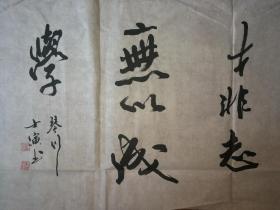 才非志
無以成
學
琴川
士寅书